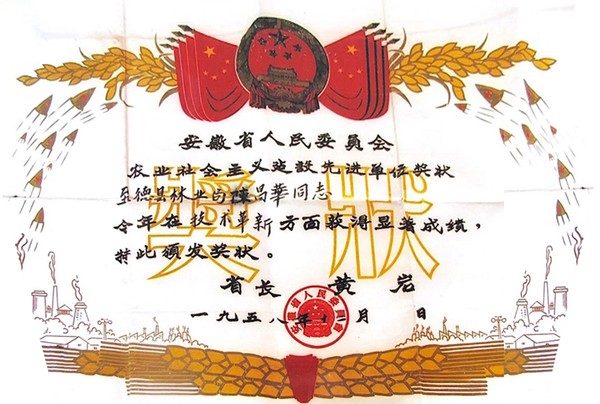 安徽省人民委员会
农业社会主义建设先进单位奖状
至德县林业局陳昌華同志
今年在技术革新方面获得显著成绩，
特此颁发奖状。
奖狀
省长 黄岩
一九五八年 月 日
安徽省人民委員會